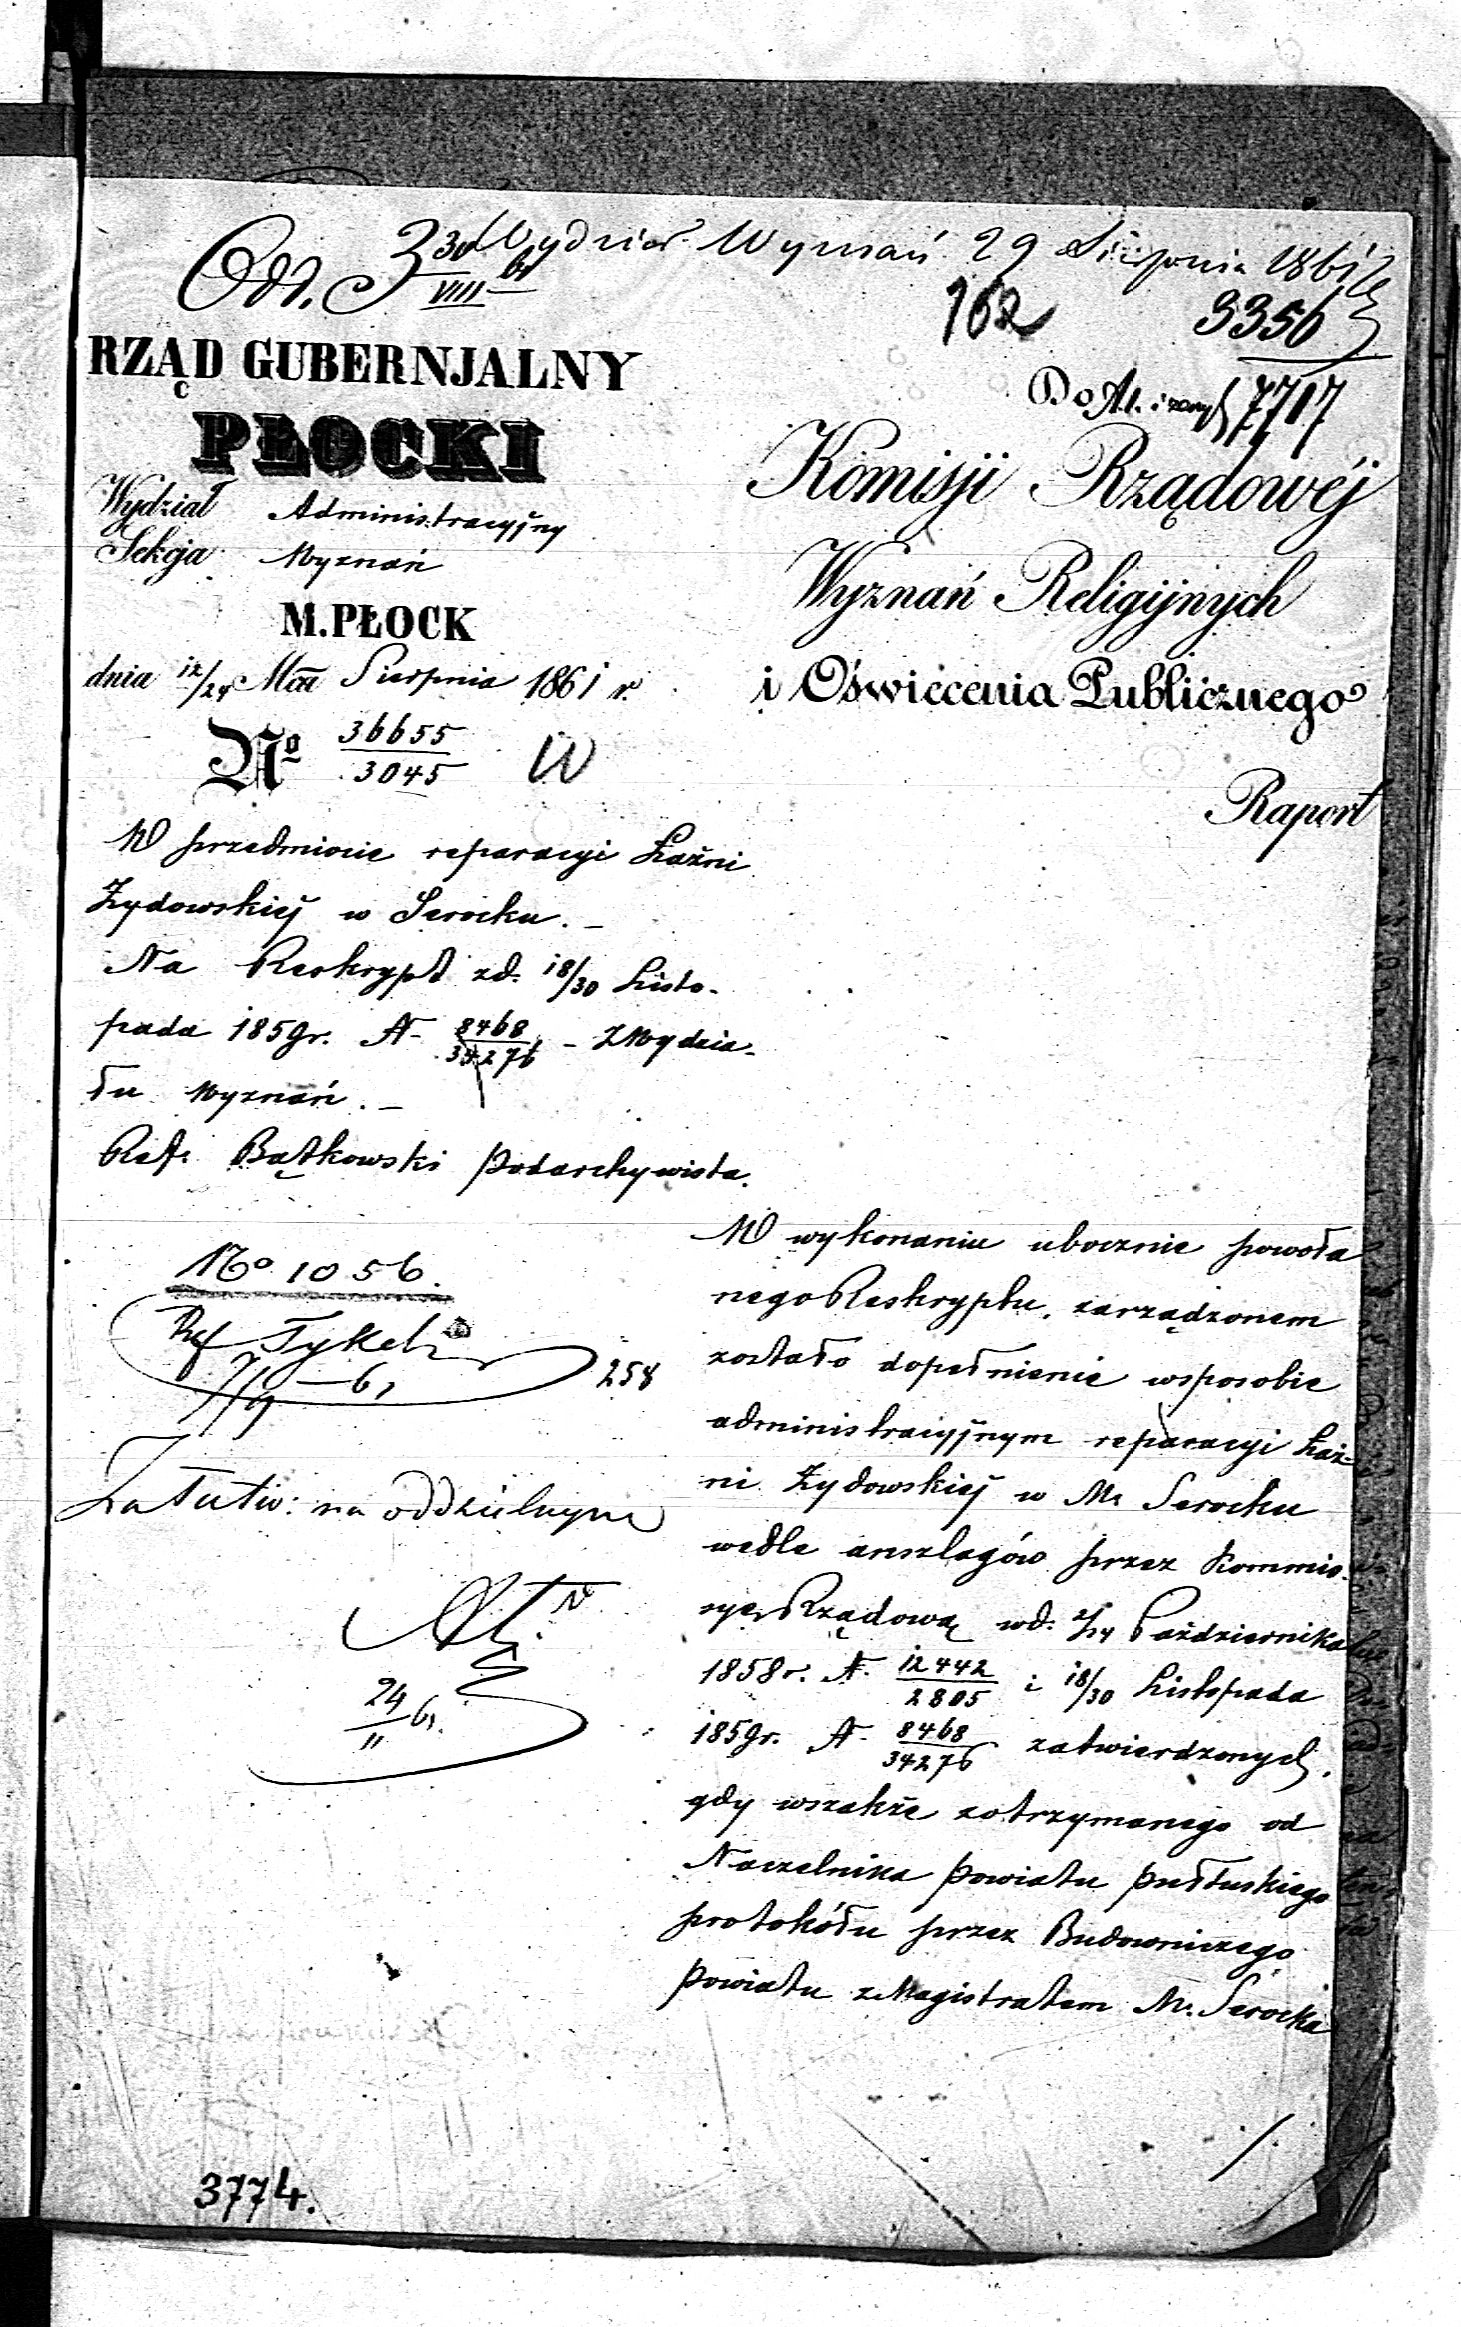 Odd. 3 30/VIII 61 Wydział Wyznań 29 Sierpnia 1861
162 3356
7707
RZĄD GUBERNJALNY
PŁOCKI
Wydział Administracyjny
Sekcja Wyznań
M. PŁOCK
dnia 12/24 Mca Sierpnia 1861 r.
No 36655/3045 W
Do Akt
Komisji Rządowéj
Wyznań Religijnych
i Oświecenia Publicznego
Raport
W przedmiocie reparacyi Łaźni
Żydowskiéj w Serocku. –
Na Reskrypt z d. 18/30 Listo-
pada 1859 r. N. 8468/34276 – z Wydzia-
łu Wyznań. –
Ref. Bątkowski Podarchywista.
No 1056.
Ref Tykel
7/9 – 61
258
Załatw: na oddzielnym
24/11 61.
W wykonaniu ubocznie powoła
nego Reskryptu, zarządzonem
zostało dopełnienie w sposobie
administracyjnym reparacyi Łaź-
ni Żydowskiéj w M. Serocku
wedle anszlagów przez Kommis-
syę Rządową w d. 2/14 Października
1858 r. N. 12442/2805 i 18/30 Listopada
1859 r. N. 8468/34276 zatwierdzonych,
gdy wszakże z otrzymanego od
Naczelnika Powiatu Pułtuskiego
protokółu przez Budowniczego
Powiatu z Magistratem M. Serocka
3774.